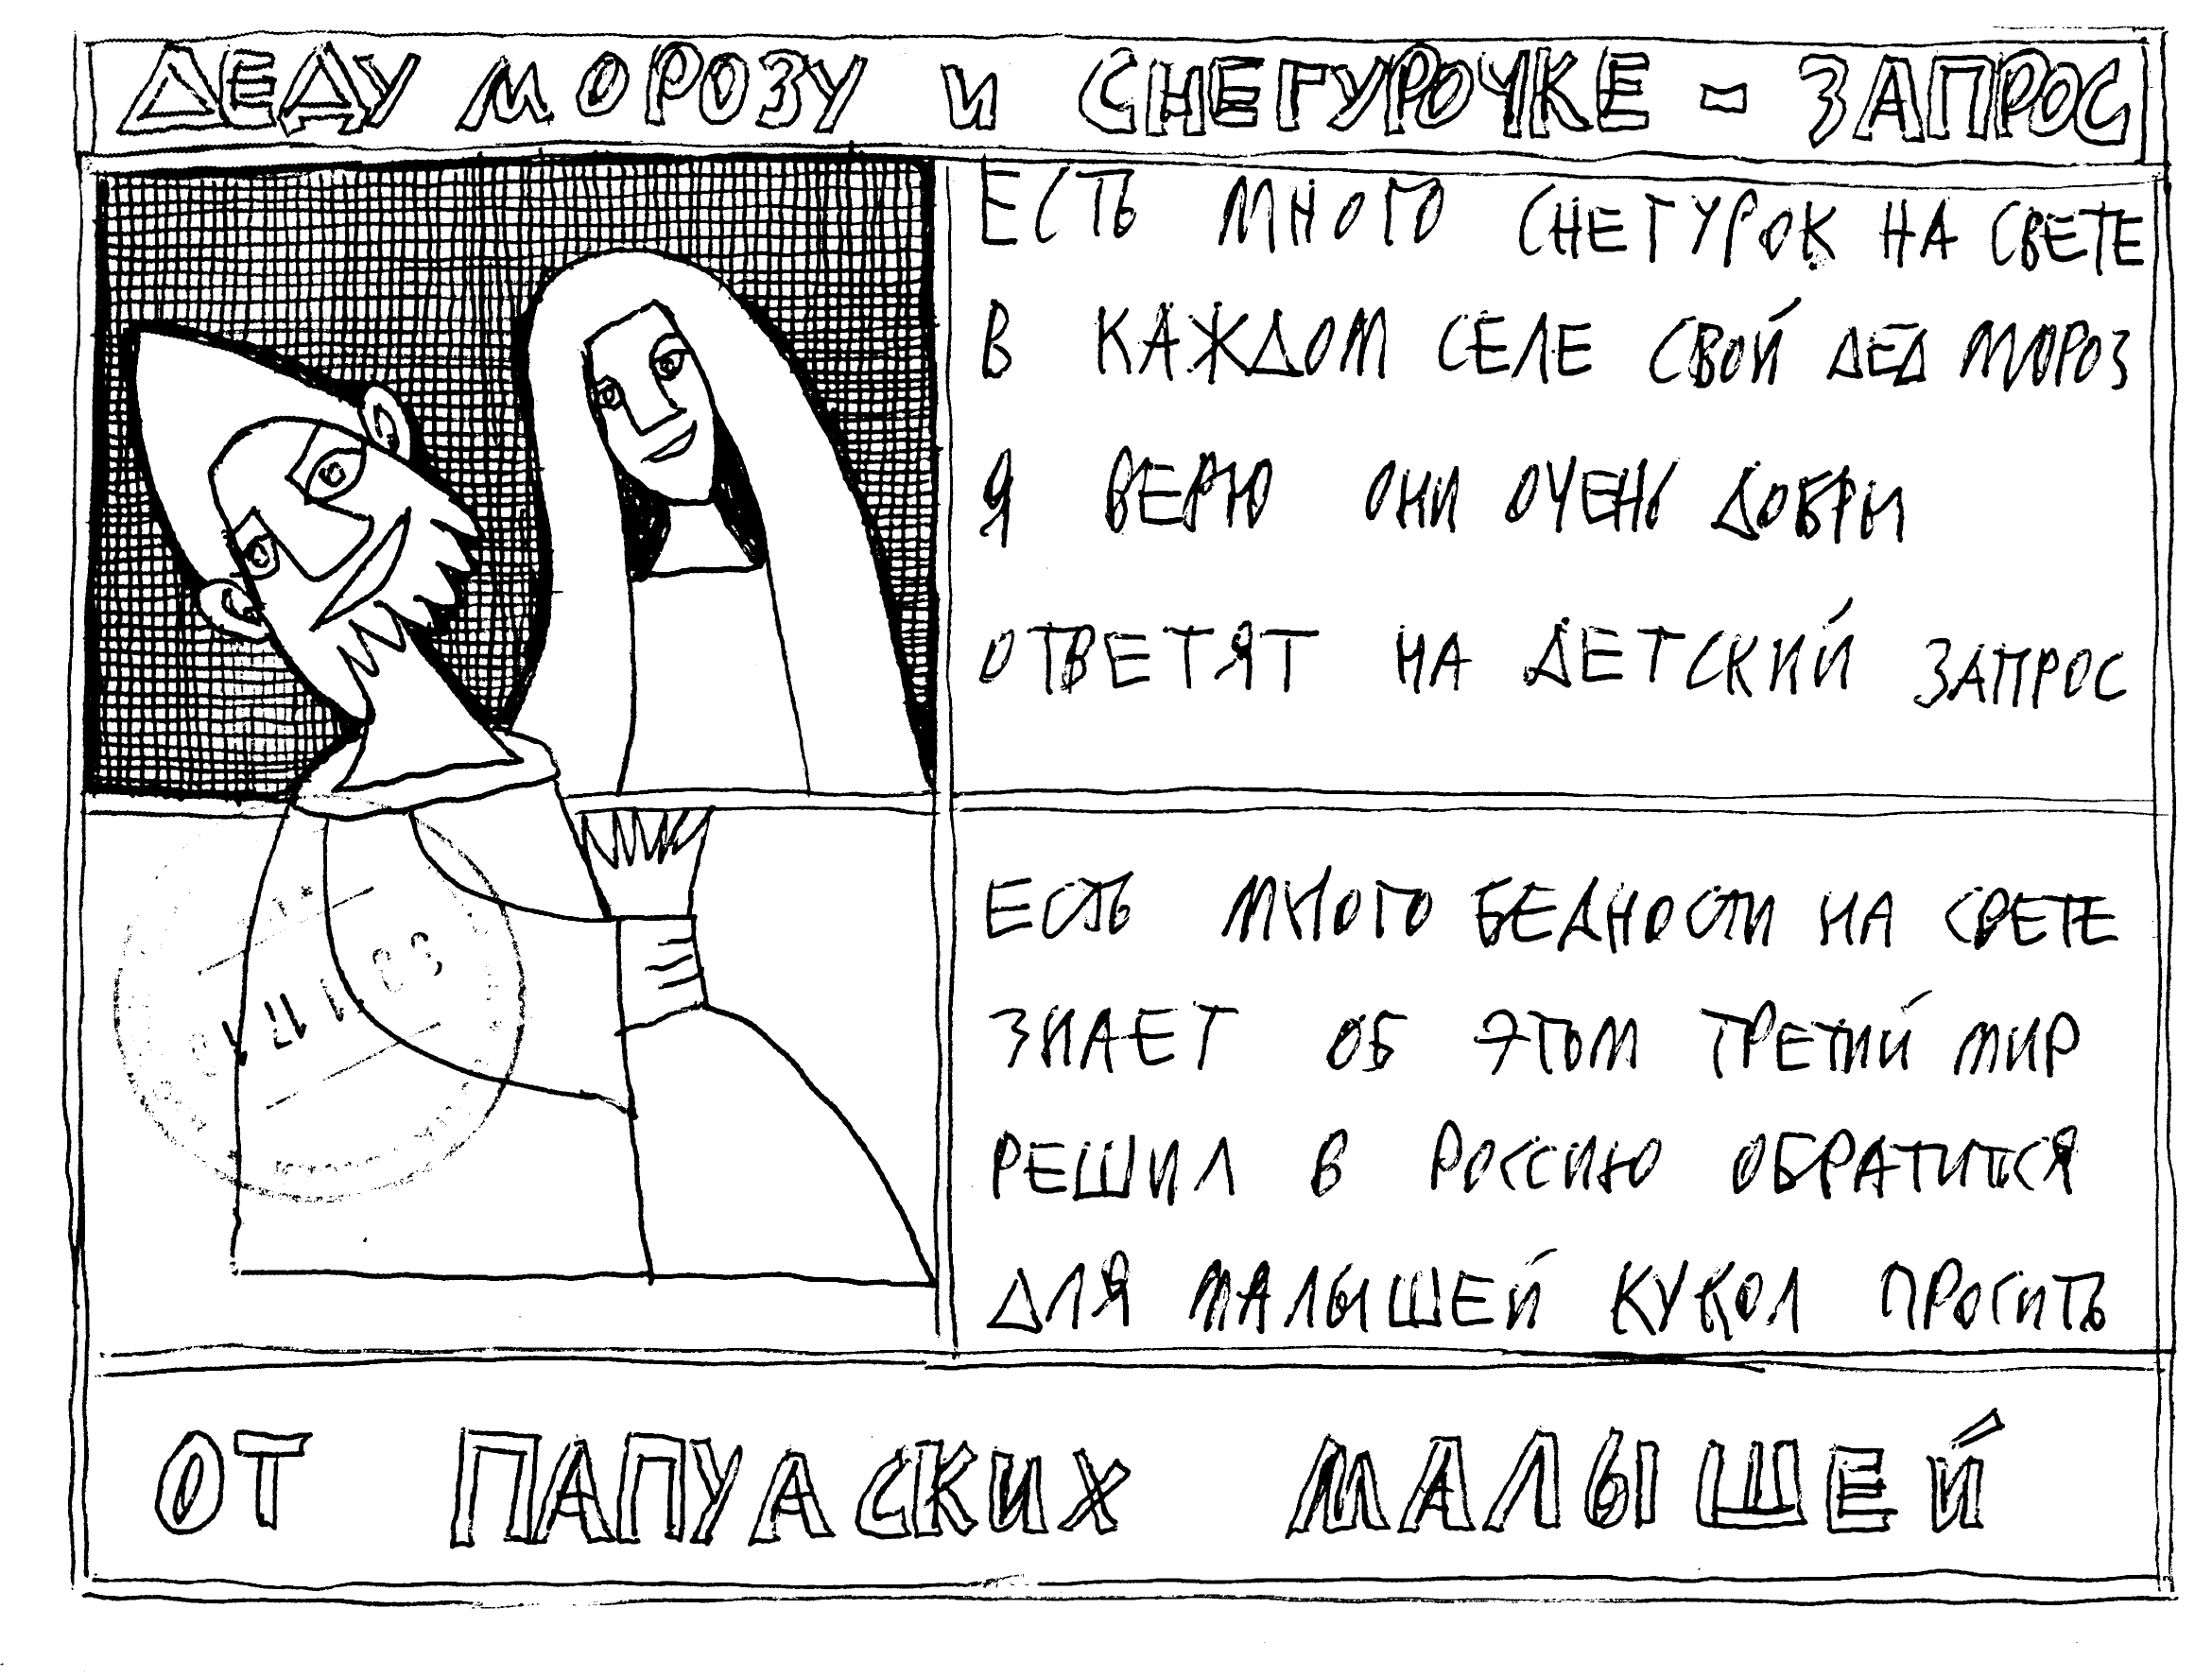 ДЕДУ МОРОЗУ И СНЕГУРОЧКЕ - ЗАПРОС
ЕСТЬ МНОГО СНЕГУРОК НА СВЕТЕ
В КАЖДОМ СЕЛЕ СВОЙ ДЕД МОРОЗ
Я ВЕРЮ ОНИ ОЧЕНЬ ДОБРЫ
ОТВЕТЯТ НА ДЕТСКИЙ ЗАПРОС
ЕСТЬ МНОГО БЕДНОСТИ НА СВЕТЕ
ЗНАЕТ ОБ ЭТОМ ТРЕТИЙ МИР
РЕШИЛ В РОССИЮ ОБРАТИТСЯ
ДЛЯ МАЛЫШЕЙ КУКОЛ ПРОСИТЬ
ОТ ПАПУАСКИХ МАЛЫШЕЙ